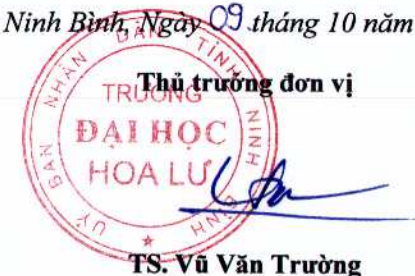 Ninh Bình, Ngày 09 tháng 10 năm
Thủ trưởng đơn vị
UỶ BAN NHÂN DÂN TỈNH NINH BÌNH
TRƯỜNG
ĐẠI HỌC
HOA LƯ
TS. Vũ Văn Trường